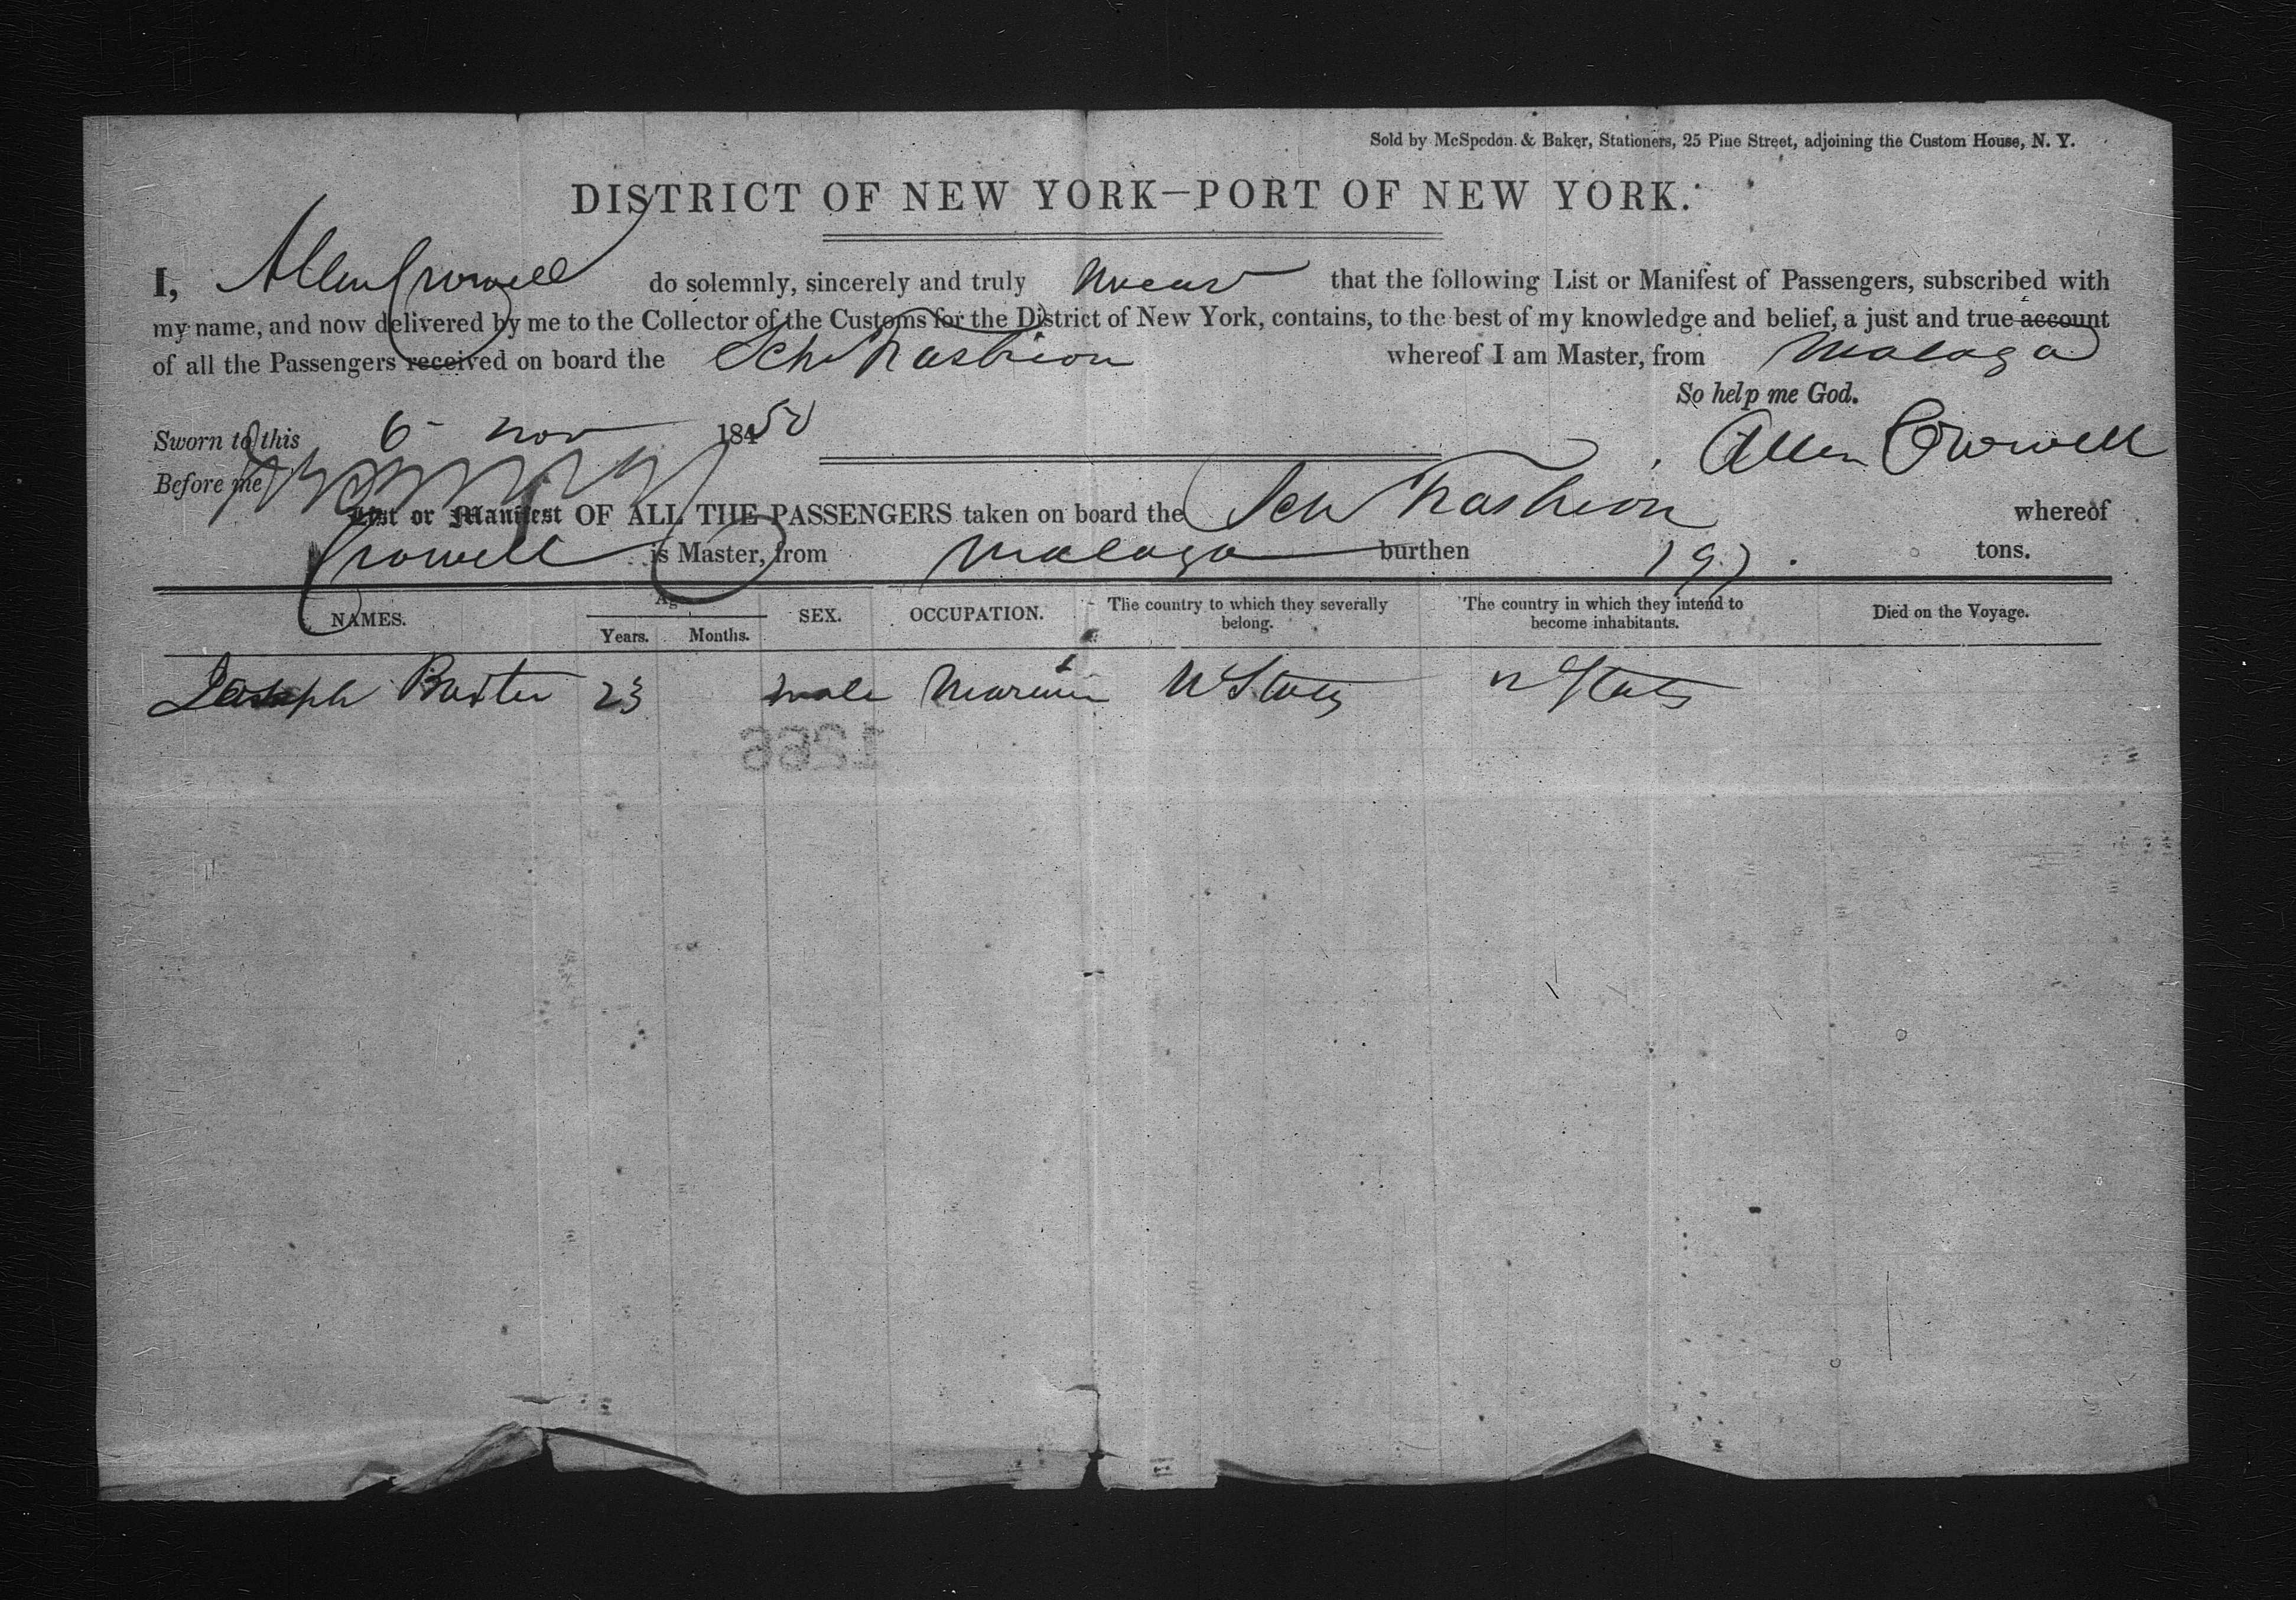 Sold by McSpedon & Baker, Stationers, 25 Pine Street, adjoining the Custom House, N. Y.
DISTRICT OF NEW YORK—PORT OF NEW YORK.
I, Allen Crowell do solemnly, sincerely and truly swear that the following List or Manifest of Passengers, subscribed with
my name, and now delivered by me to the Collector of the Customs for the District of New York, contains, to the best of my knowledge and belief, a just and true account
of all the Passengers received on board the Sch Fashion whereof I am Master, from Malaga
So help me God.
Sworn to this 6 Nov 18450
Allen Crowell
Before me
List or Manifest OF ALL THE PASSENGERS taken on board the Sch Fashion whereof
Crowell is Master, from Malaga burthen 197 tons.
NAMES. Age SEX. OCCUPATION. The country to which they severally belong. The country in which they intend to become inhabitants. Died on the Voyage.
Years. Months.
Joseph Baxter 23 male Mariner U States U States
1266